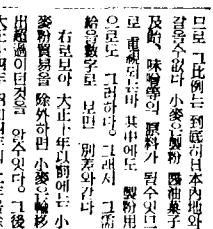 므로 그比例는 到底히日本內地와
갈을수업다 小麥은製粉 醬油菓子
及飴、味噌等의 原料가 될수잇스
로 重視되는바 其中에도 製粉用
으로도 그러하다。그래서 그需
給을數字로 보면 別差와갓다
右로보아 大正十年以前에는 小
麥粉貿易을 除外하면 小麥은輸移
出超過이던것을 안수잇다。그後